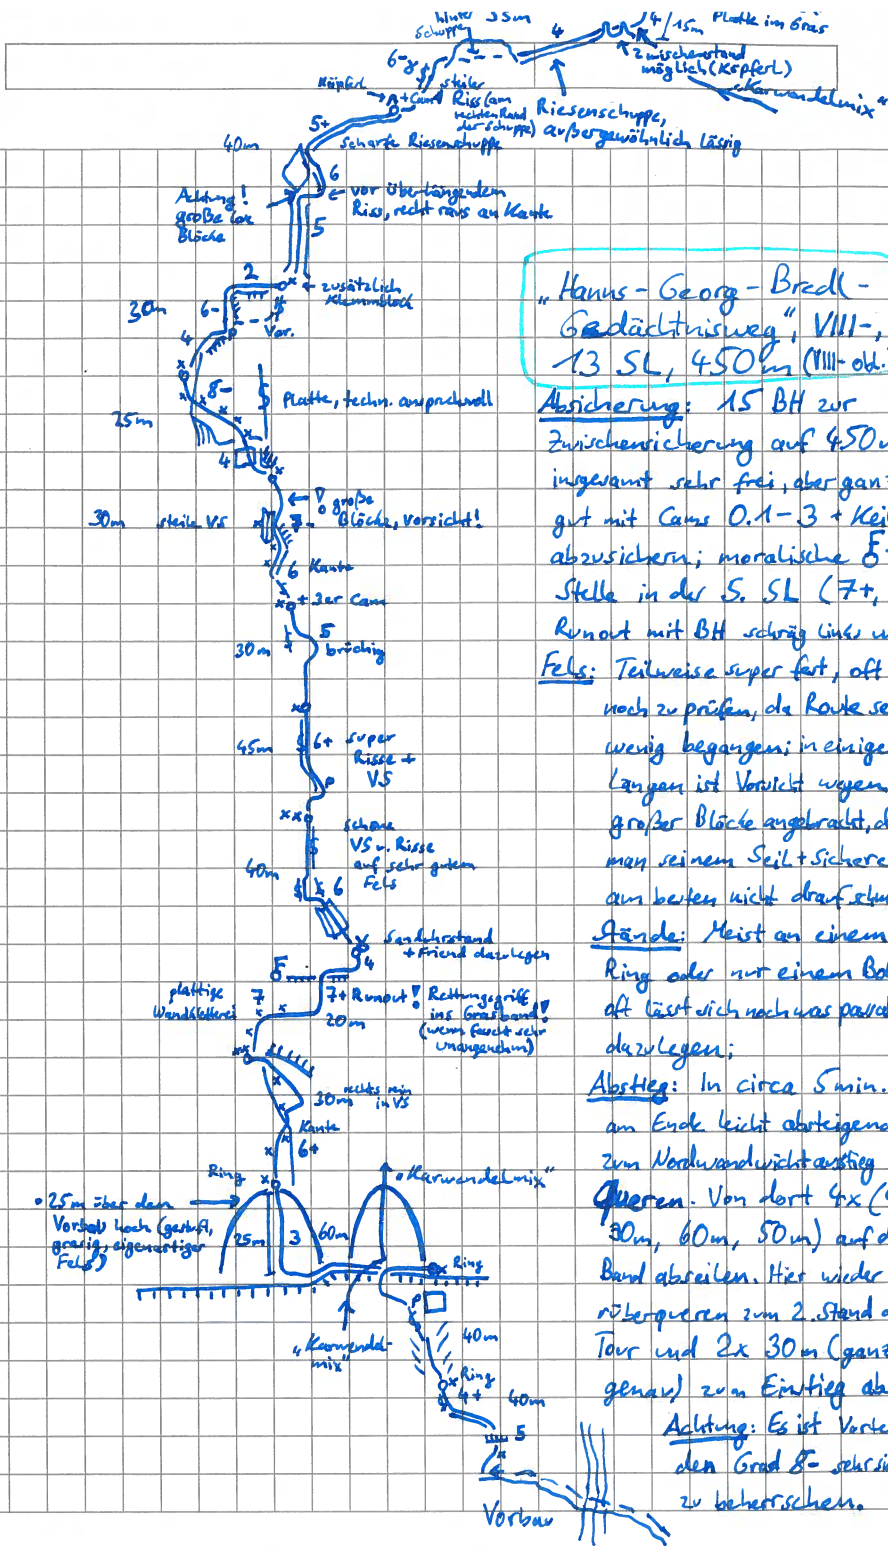 hinter Schuppe
35m
4
4
15m
Platte im Gras
Zwischenstand
möglich (Köpferl)
"Karwendelmix"
6-
steiler
Riss (am
rechten Rand
der Schuppe)
Köpferl
+ Cam
Riesenschuppe,
außergewöhnlich lässig
5+
scharfe Riesenschuppe
40m
6
Achtung!
große lose
Blöcke
vor überhängendem
Riss, recht raus an Kante
5
2
zusätzlich
Klemmblock
30m
6-
Var.
4
8-
Platte, techn. anspruchsvoll
25m
4
! große
Blöcke, vorsicht!
30m
steile VS
7-
6
Kante
+ 3er Cam
5
brüchig
30m
45m
6+
super
Risse +
VS
schöne
VS u. Risse
auf sehr gutem
Fels
40m
6
Sanduhrstand
+ Friend dazulegen
4
plattige
Wandkletterei
7
7+ Runout!
20m
Rettungsgriff
ins Grasband!
(wenn feucht sehr
unangenehm)
30m
rechts rein
in VS
Kante
6+
Ring
"Karwendelmix"
• 25m über den
Vorbau hoch (gestuft,
grasig, eigenartiger
Fels)
25m
3
60m
Ring
P
40m
"Karwendel-
mix"
Ring
4+
40m
5
Vorbau
"Hanns-Georg-Bredl-
Gedächtnisweg", VIII-,
13 SL, 450m (VIII- obl.
Absicherung: 15 BH zur
Zwischensicherung auf 450
insgesamt sehr frei, aber ganz
gut mit Cams 0.1-3 + Kei
abzusichern; moralische
Stelle in der 5. SL (7+,
Runout mit BH schräg links u
Fels: Teilweise super fest, oft
noch zu prüfen, da Route se
wenig begangen; in einige
Längen ist Vorsicht wegen
großer Blöcke angebracht, d
man seinem Seil + Sichere
am besten nicht drauf schm
Stände: Meist an einem
Ring oder nur einem Bo
oft lässt sich noch was passa
dazulegen;
Abstieg: In circa 5min.
am Ende leicht absteigend
zum Nordwandwichtausstieg
Queren. Von dort 4x (
30m, 60m, 50m) auf d
Band abseilen. Hier wieder
rüberqueren zum 2. Stand d
Tour und 2x 30m (ganz
genau) zum Einstieg ab
Achtung: Es ist Vorte
den Grad 8- sehr si
zu beherrschen.